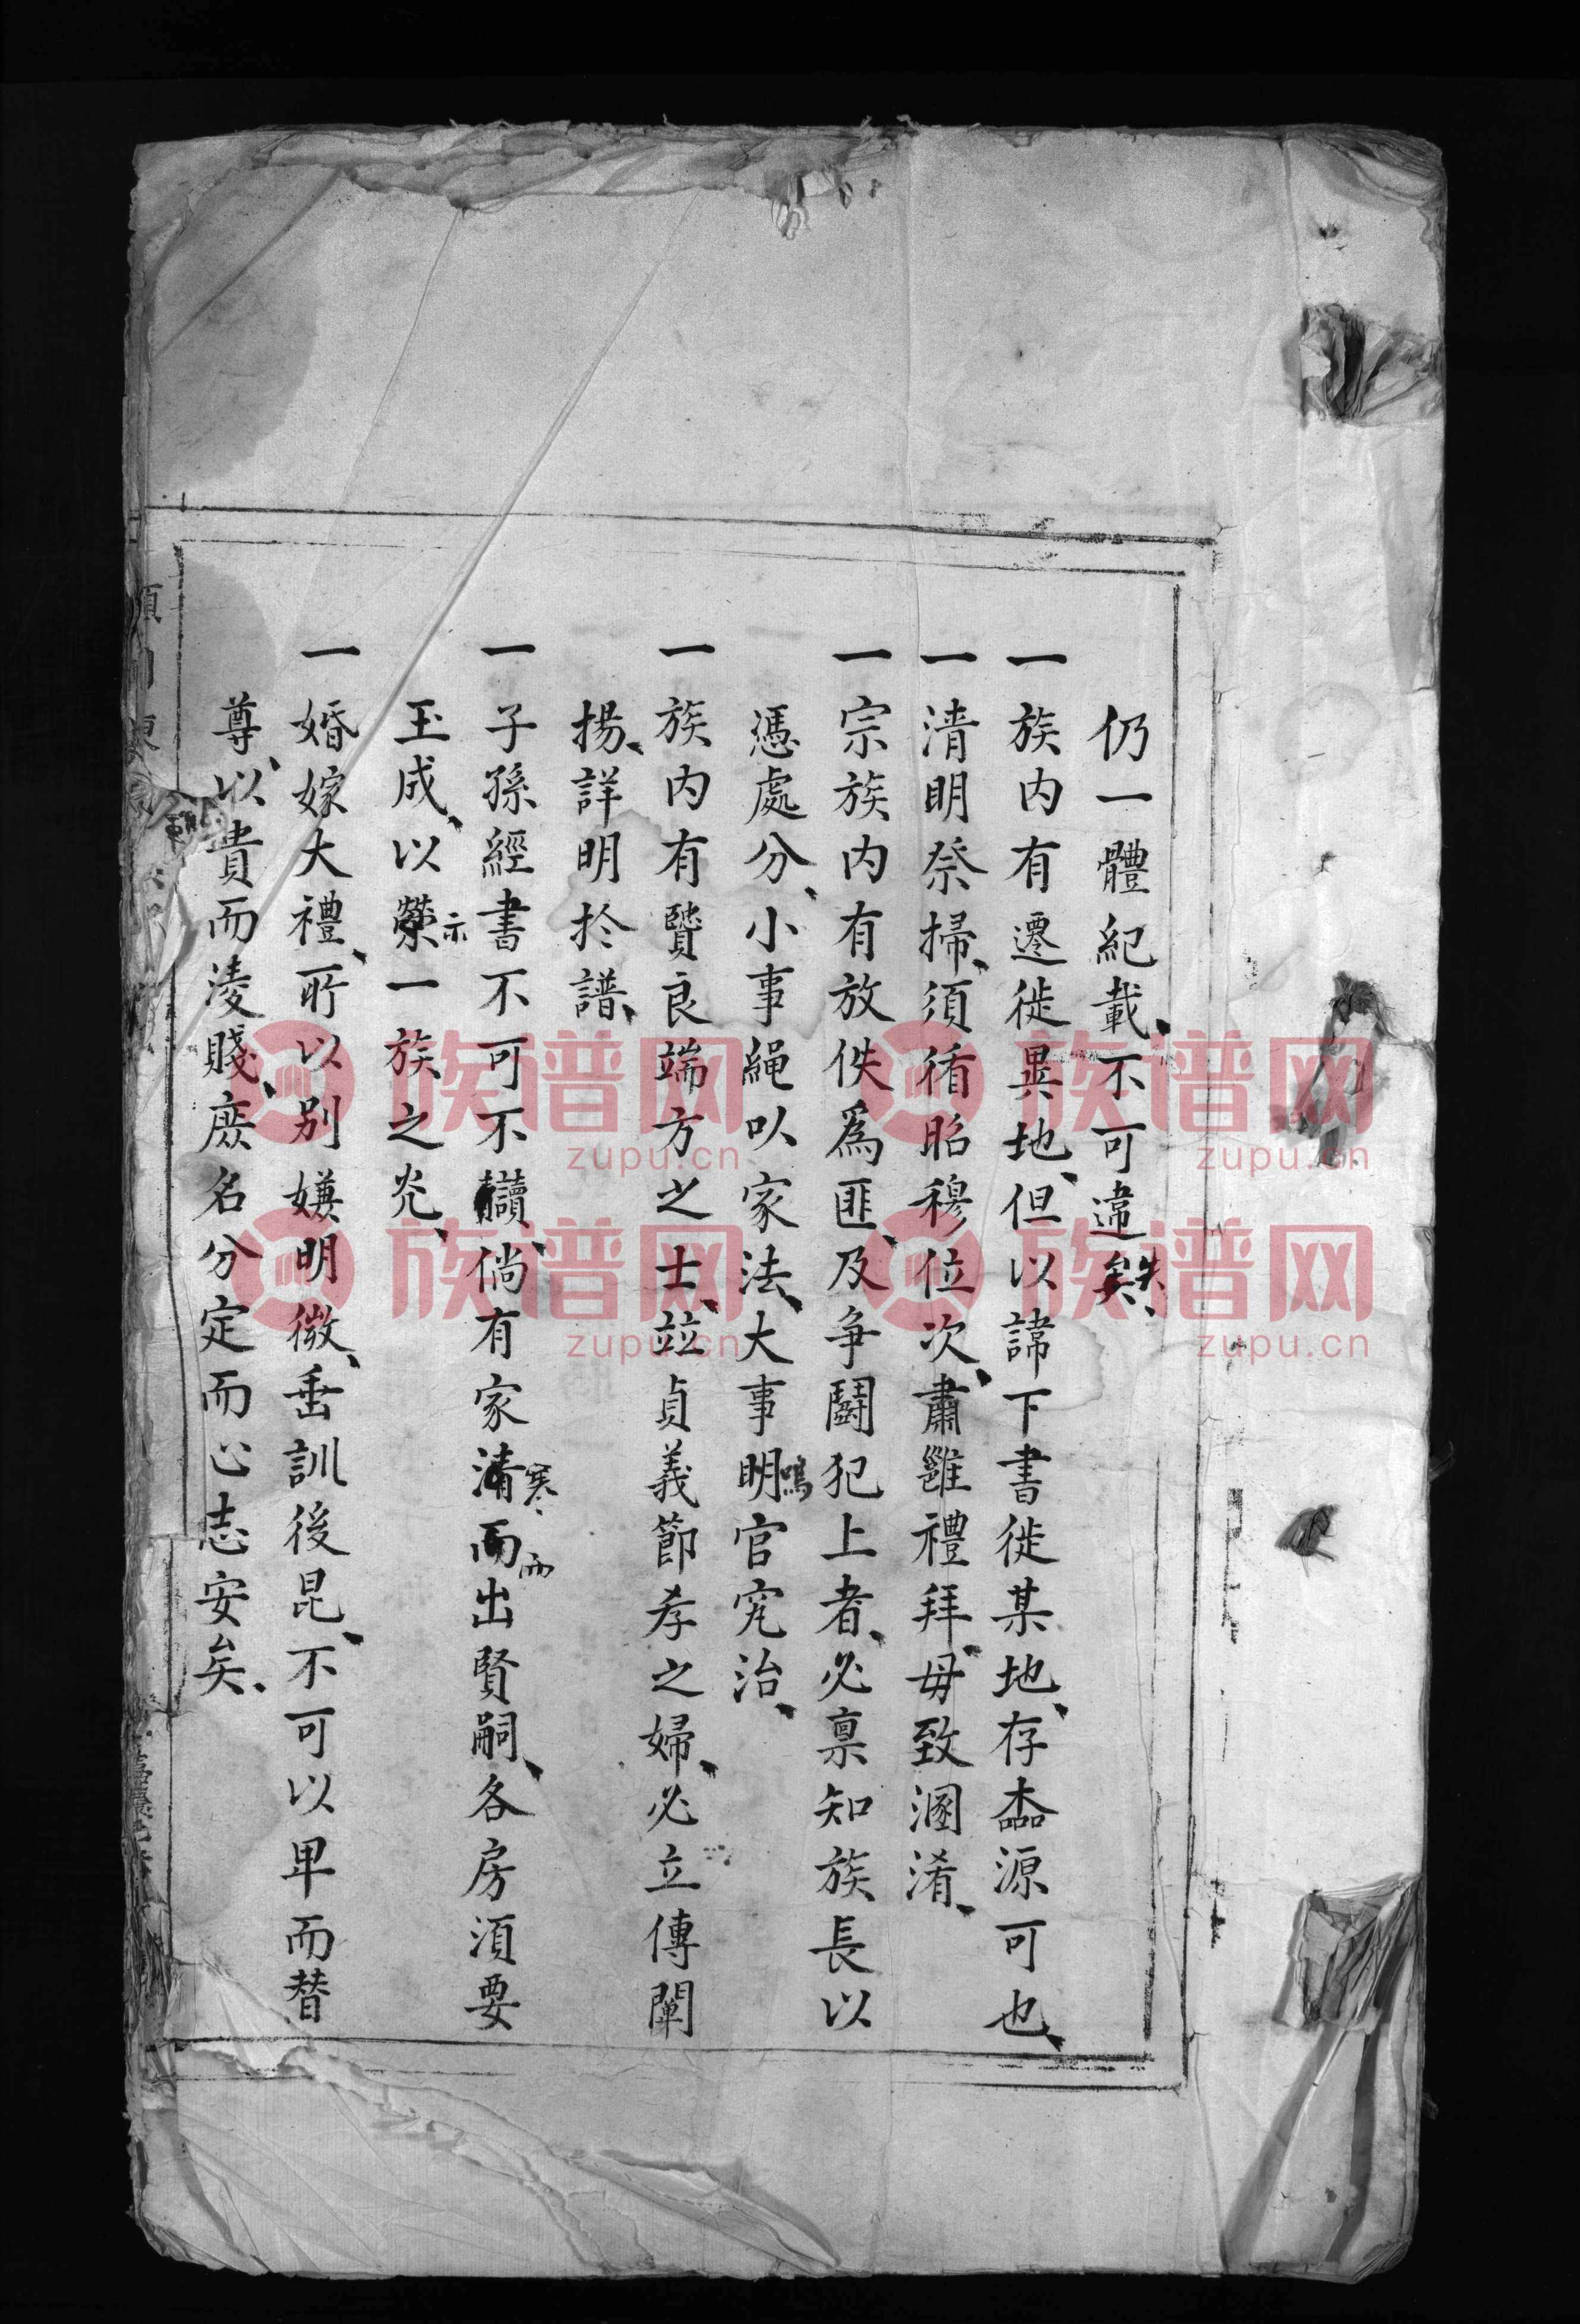 仍一體紀載、不可違矣、失
一族内有遷徙異地、但以諱下書徙某地、存㮺源可也、
一清明祭掃、須循昭穆位次、肅雝禮拜、毋致溷淆、
一宗族内有放佚爲匪、及爭鬪犯上者、必稟知族長以
憑處分、小事繩以家法、大事明鳴官究治、
一族内有賢良端方之士、竝貞義節孝之婦、必立傳闡
揚、詳明於譜、
一子孫經書不可不讀、倘有家清寒而而出賢嗣、各房須要
玉成、以榮示一族之光、
一婚嫁大禮、所以别嫌明微、垂訓後昆、不可以卑而替
尊、以貴而凌賤、庶名分定而心志安矣、
族谱网 族谱网
zupu.cn zupu.cn
族谱网 族谱网
zupu.cn zupu.cn